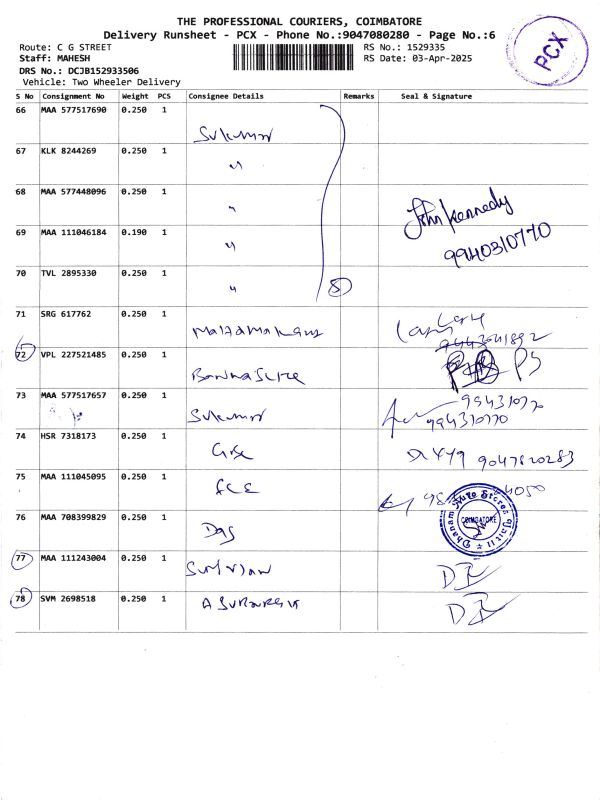 THE PROFESSIONAL COURIERS, COIMBATORE
Delivery Runsheet - PCX - Phone No.:9047080280 - Page No.:6
Route: C G STREET
RS No.: 1529335
Staff: MAHESH
RS Date: 03-Apr-2025
DRS No.: DCJB152933506
Vehicle: Two Wheeler Delivery
PCX
S No Consignment No Weight PCS Consignee Details Remarks Seal & Signature
66 MAA 577517690 0.250 1
Sukumar
67 KLK 8244269 0.250 1
"
68 MAA 577448096 0.250 1
"
John Kennedy
69 MAA 111046184 0.190 1
"
9940310770
70 TVL 2895330 0.250 1
"
5
71 SRG 617762 0.250 1
72 VPL 227521485 0.250 1
PS
73 MAA 577517657 0.250 1
Sukumar
994310770
74 HSR 7318173 0.250 1
9047820283
75 MAA 111045095 0.250 1
76 MAA 708399829 0.250 1
Das
COIMBATORE
77 MAA 111243004 0.250 1
78 SVM 2698518 0.250 1